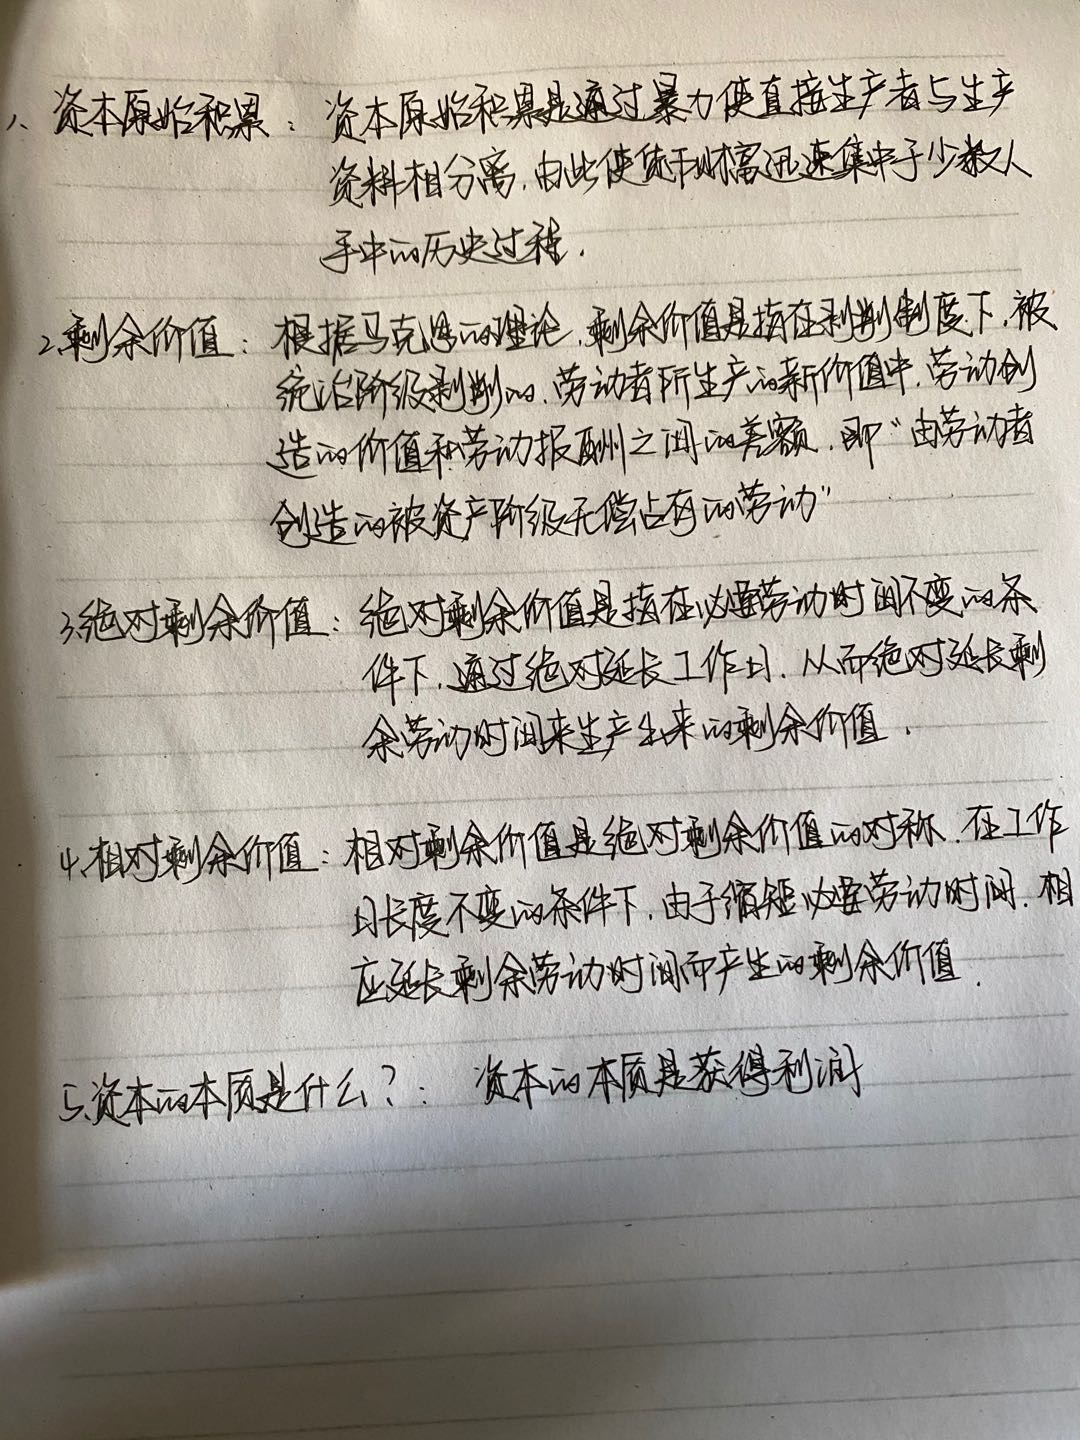 1、资本原始积累：资本原始积累是通过暴力使直接生产者与生产
资料相分离，由此使货币财富迅速集中于少数人
手中的历史过程.
2、剩余价值：根据马克思的理论，剩余价值是指在剥削制度下，被
统治阶级剥削的，劳动者所生产的新价值中，劳动创
造的价值和劳动报酬之间的差额，即“由劳动者
创造的被资产阶级无偿占有的劳动”
3、绝对剩余价值：绝对剩余价值是指在必要劳动时间不变的条
件下，通过绝对延长工作日，从而绝对延长剩
余劳动时间来生产出来的剩余价值.
4、相对剩余价值：相对剩余价值是绝对剩余价值的对称.在工作
日长度不变的条件下，由于缩短必要劳动时间，相
应延长剩余劳动时间而产生的剩余价值.
5、资本的本质是什么？：资本的本质是获得利润